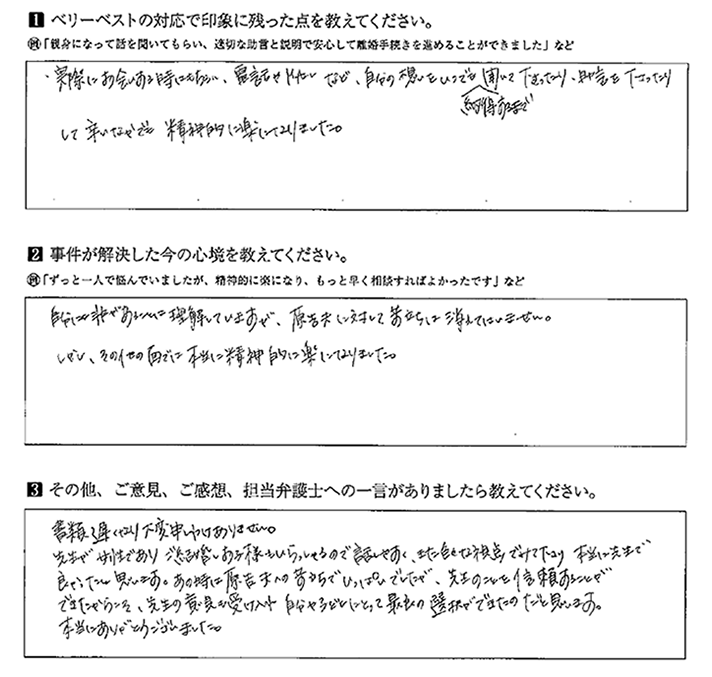 1 ベリーベストの対応で印象に残った点を教えてください。
例「親身になって話を聞いてもらい、適切な助言と説明で安心して離婚手続きを進めることができました」など
・実際にお会いする時にもちろん、電話やメールなど、自分の想いをいつでも聞いて下さったり、助言を下さったり
納得するまで
して辛いなかでも精神的に楽になりました。
2 事件が解決した今の心境を教えてください。
例「ずっと一人で悩んでいましたが、精神的に楽になり、もっと早く相談すればよかったです」など
自分に非があることは理解していますが、原告夫に対して苛立ちは消えてはいません。
しかし、その他の面では本当に精神的に楽になりました。
3 その他、ご意見、ご感想、担当弁護士への一言がありましたら教えてください。
書類遅くなり大変申しわけありません。
先生が女性であり ご結婚しお子様もいらっしゃるので話しやすく、また色々な視点でみて下さり 本当に先生で
良かったと思います。あの時は原告夫への苛立ちでいっぱいでしたが、先生のことを信頼することが
できたからこそ、先生の意見も受け入れ 自分や子どもにとって最良の選択ができたのだと思います。
本当にありがとうございました。